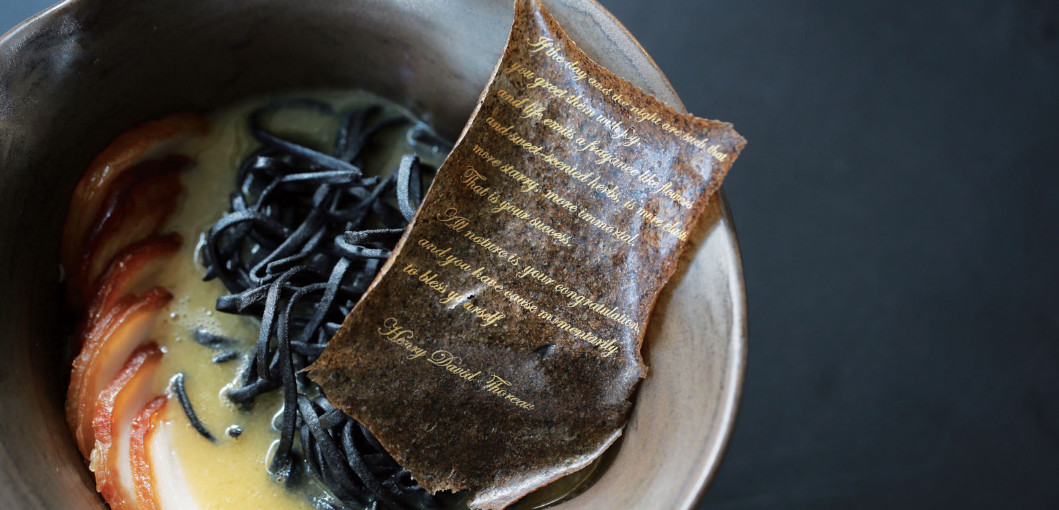 If the day and the night are such that
you greet them with joy
and life emits a fragrance like flowers
and sweet-scented herbs, is more elastic
more starry, more immortal
That is your success.
All nature is your congratulation,
and you have cause momentarily
to bless yourself.
Henry David Thoreau